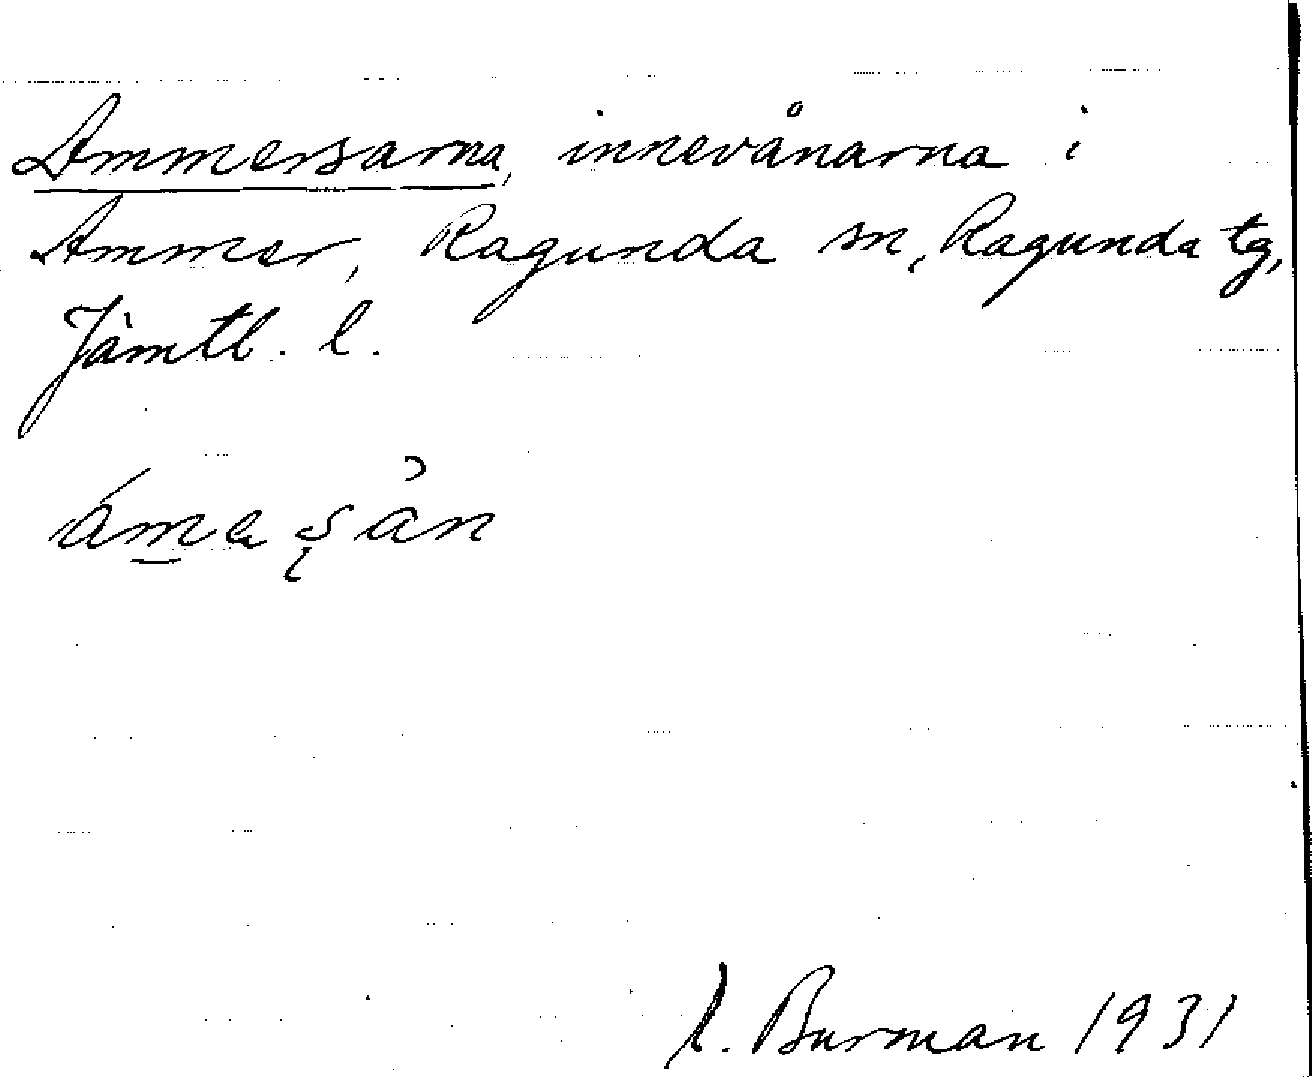 Ammersarna, innevånarna i
Ammer, Ragunda sn, Ragunda tg,
Jämtl. l.
Burman 1931